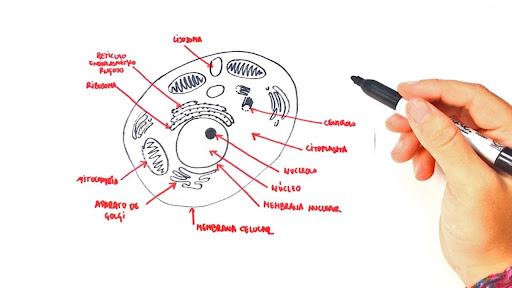 LISOSOMA
RETÍCULO
ENDOPLASMÁTICO
RUGOSO
RIBOSOMA
CENTRIOLO
CITOPLASMA
MITOCONDRIA
NUCLEOLO
NÚCLEO
APARATO DE
GOLGI
MEMBRANA NUCLEAR
MEMBRANA CELULAR